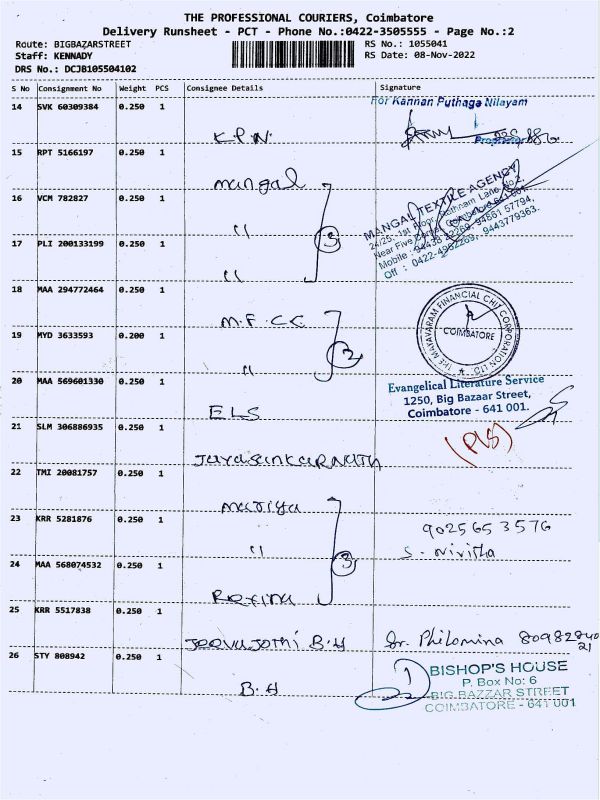 THE PROFESSIONAL COURIERS, Coimbatore
Delivery Runsheet - PCT - Phone No.:0422-3505555 - Page No.:2
Route: BIGBAZARSTREET
Staff: KENNADY
DRS No.: DCJB105504102
RS No.: 1055041
RS Date: 08-Nov-2022
S No Consignment No Weight PCS Consignee Details Signature
14 SVK 60309384 0.250 1 K.P.N.
For Kannan Puthaga Nilayam
Proprietor
15 RPT 5166197 0.250 1 mangal
16 VCM 782827 0.250 1 "
17 PLI 200133199 0.250 1 "
3
MANGAL TEXTILE AGENCY
24/25, 1st Floor, Rathnam Lane No.2,
Near Five Corner, Coimbatore 641 001.
Mobile : 94438 22269, 94861 57794,
Off : 0422-4952269, 9443779363.
18 MAA 294772464 0.250 1 M.F.C.C
19 MYD 3633593 0.200 1 "
2
THE MAYAVARAM FINANCIAL CHIT CORPORATION LTD.
COIMBATORE
20 MAA 569601330 0.250 1 ELS
Evangelical Literature Service
1250, Big Bazaar Street,
Coimbatore - 641 001.
21 SLM 306886935 0.250 1 Jayasankarnath
22 TMI 20081757 0.250 1 mariya
23 KRR 5281876 0.250 1 "
24 MAA 568074532 0.250 1 Rexina
3
9025653576
S. Nivitha
25 KRR 5517838 0.250 1 Jeevajothi B.H
Sr. Philomina 8098284021
26 STY 808942 0.250 1 B.H
BISHOP'S HOUSE
P. Box No: 6
BIG BAZZAR STREET
COIMBATORE - 641 001